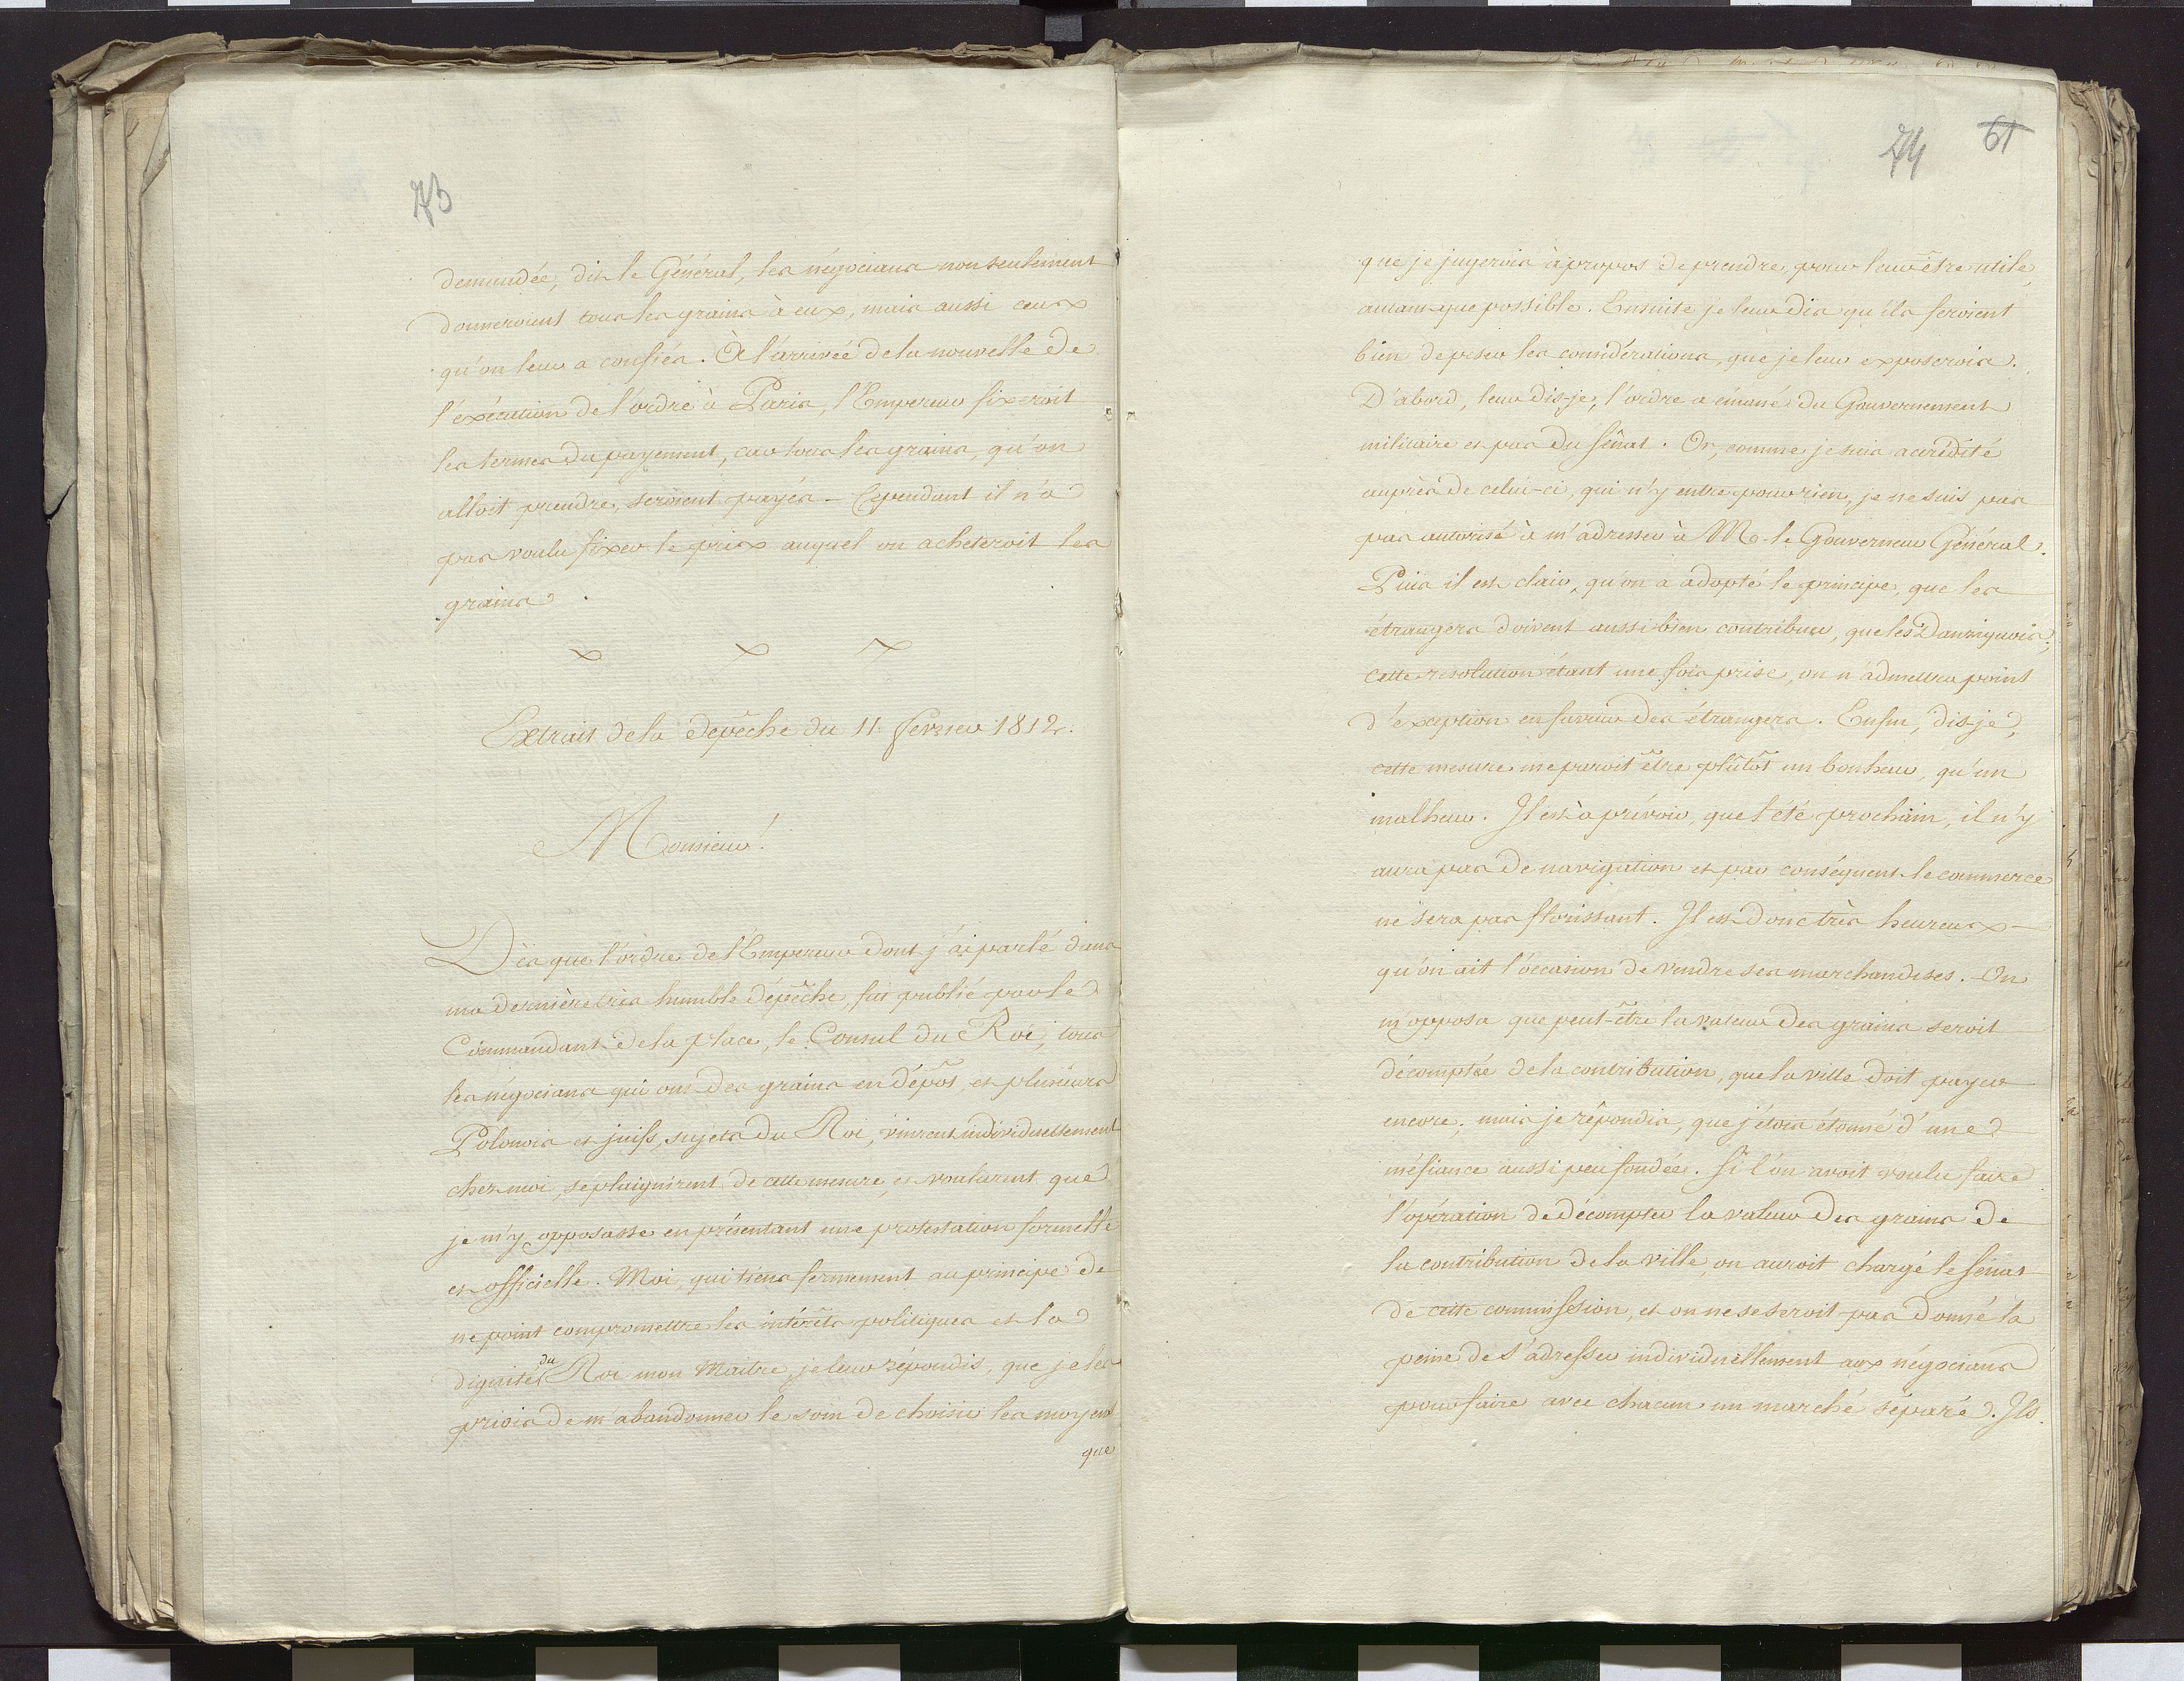 73
demandée, dit le Général, les négocians non seulement
donneroient tous les grains à eux, mais aussi ceux
qu'on leur a confiés. À l'arrivée de la nouvelle de
l'exécution de l'ordre à Paris, l'Empereur fixeroit
les termes du payement, car tous les grains, qu'on
alloit prendre, seroient payés. Cependant il n'a
pas voulu fixer le prix auquel on acheteroit les
grains.
Extrait de la dépêche du 11. fevrier 1812.
Monsieur!
Dès que l'ordre de l'Empereur dont j'ai parlé dans
ma dernière très humble dépêche, fut publié par le
Commandant de la place, le Consul du Roi, tous
les négocians qui ont des grains en dépôt, et plusieurs
Polonois et juifs, sujets du Roi, vinrent individuellement
chez moi, se plaignirent de cette mesure, et voulurent que
je m'y opposasse en présentant une protestation formelle
et officielle. Moi, qui tiens fermement au principe de
ne point compromettre les intérêts politiques et la
dignité du Roi mon Maitre, je leur répondis, que je les
priois de m'abandonner le soin de choisir les moyens
que
74 61
que je jugerois à propos de prendre, pour leur être utile,
autant que possible. Ensuite je leur dis qu'ils feroient
bien de peser les considérations, que je leur exposerois.
D'abord, leur dis-je, l'ordre a émané du Gouvernement
militaire et pas du Sénat. Or, comme je suis accrédité
auprès de celui-ci, qui n'y entre pour rien, je ne suis pas
pas autorisé à m'adresser à Mr. le Gouverneur Général.
Puis il est clair, qu'on a adopté le principe, que les
étrangers doivent aussi bien contribuer, que les Danzigeois;
cette resolution étant une fois prise, on n'admettra point
d'exception en faveur des étrangers. Enfin, dis-je,
cette mesure me paroit être plûtôt un bonheur, qu'un
malheur. Il est à prévoir, que l'été prochain, il n'y
aura pas de navigation et par conséquent le commerce
ne sera pas florissant. Il est donc très heureux
qu'on ait l'occasion de vendre ses marchandises. On
m'opposa que peut-être la valeur des grains seroit
décomptée de la contribution, que la ville doit payer
encore; mais je répondis, que j'étois étonné d'une
méfiance aussi peu fondée. Si l'on avoit voulu faire
l'opération de décompter la valeur des grains de
la contribution de la ville, on auroit chargé le Sénat
de cette commission, et on ne se seroit pas donné la
peine de s'adresser individuellement aux négocians
pour faire avec chacun un marché séparé. Ils